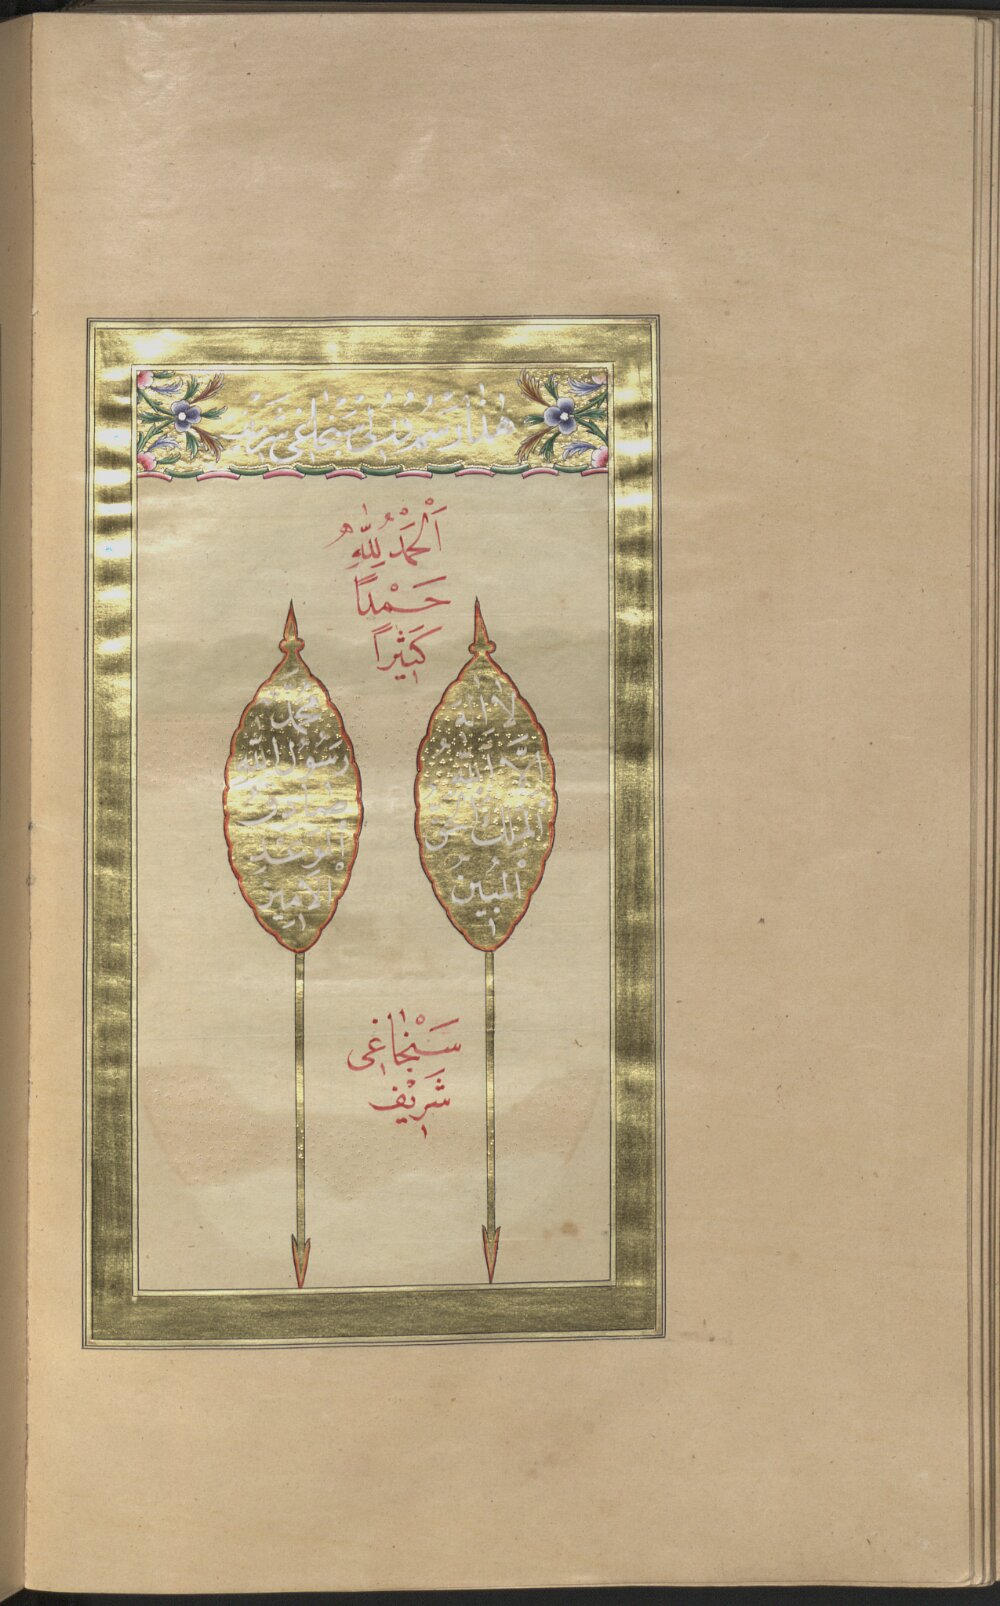 هٰذَا رَسْمِ قُدْسِى سَنْجَاغِى شَرِيفْ
اَلْحَمْدُ لِلّٰهِ
حَمْدًا
كَثِيْرًا
لَا اِلٰهَ
اِلَّا اللّٰهُ
الْمَلِكُ الْحَقُّ
الْمُبِينُ
مُحَمَّدٌ
رَسُولُ اللّٰهِ
صَادِقُ
الْوَعْدِ
الْاَمِينُ
سَنْجَاغِى
شَرِيْفِ